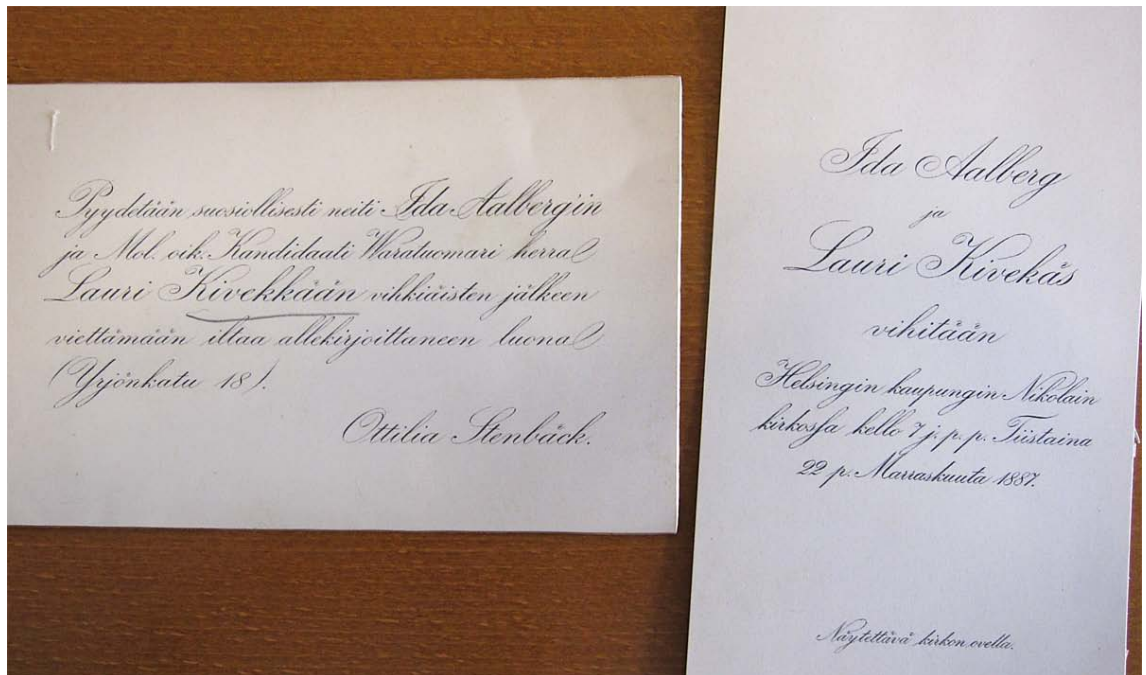 Pyydetään suosiollisesti neiti Ida Aalberg'in
ja Mol. oik. Kandidaati Waratuomari herra
Lauri Kivekkään vihkiäisten jälkeen
viettämään iltaa allekirjoittaneen luona
(Yrjönkatu 18).
Ottilia Stenbäck.
Ida Aalberg
ja
Lauri Kivekäs
vihitään
Helsingin kaupungin Nikolain
kirkossa kello 7 j. p. p. Tiistaina
22 p. Marraskuuta 1887.
Näytettävä kirkon ovella.